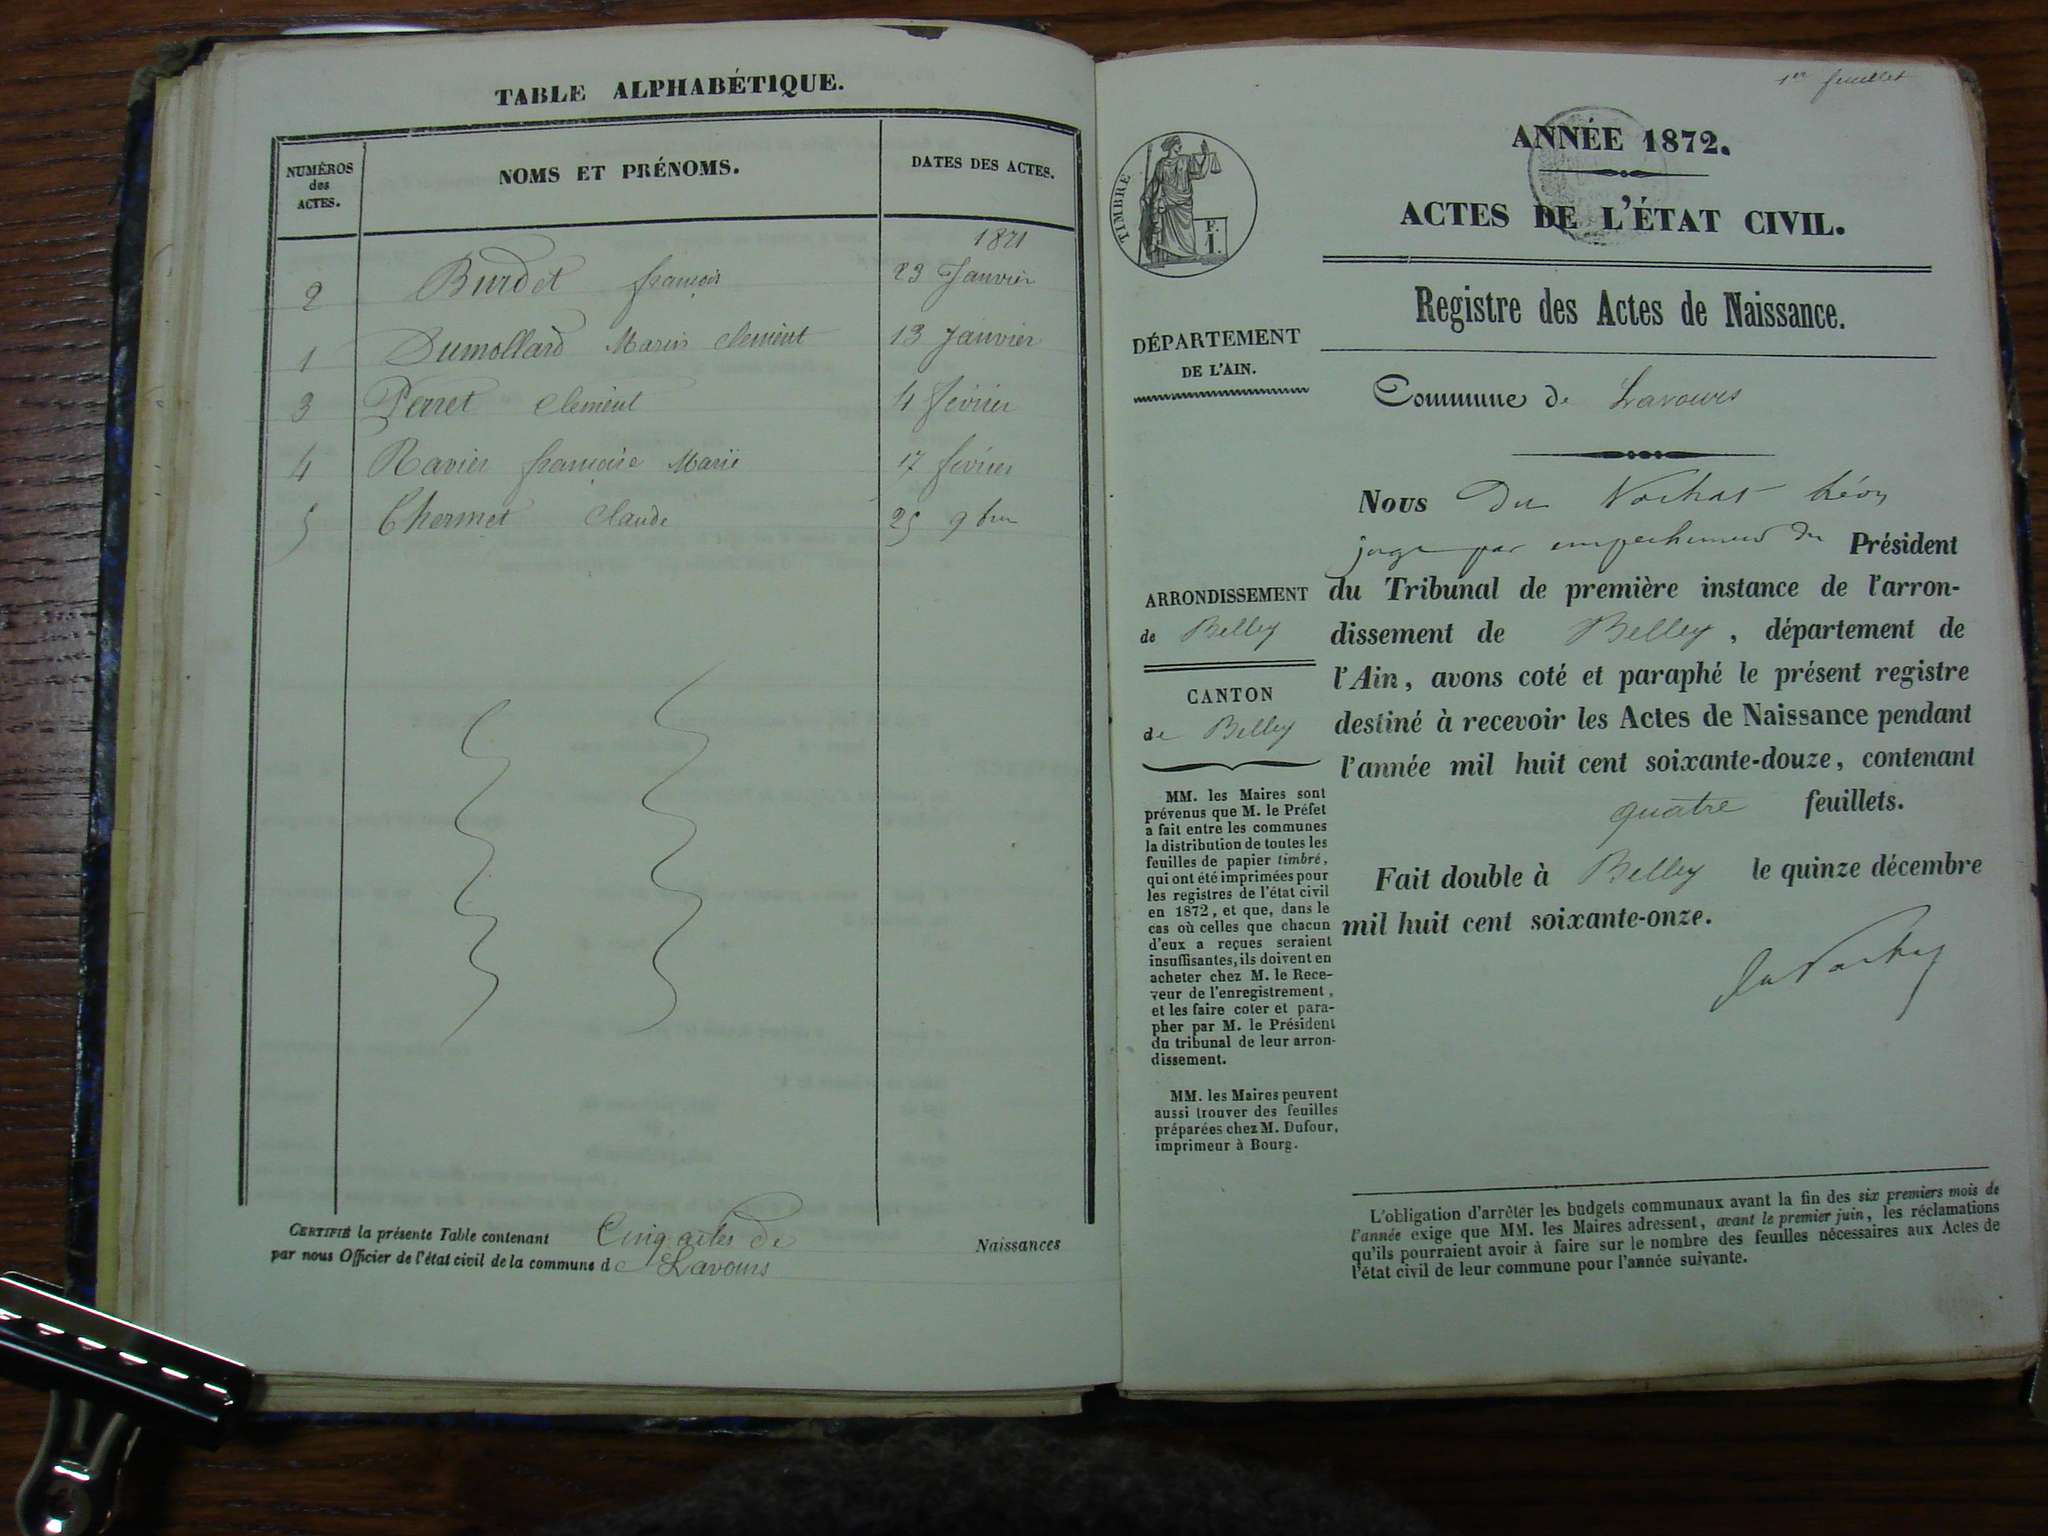 TABLE ALPHABÉTIQUE.
NUMÉROS
des
ACTES.
NOMS ET PRÉNOMS.
DATES DES ACTES.
1871
2 Burdet françois 23 Janvier
1 Dumollard Marin clement 13 Janvier
3 Perret clement 4 février
4 Ravier françoise Marie 17 février
5 Chermet Claude 25 9bre
CERTIFIÉ la présente Table contenant Cinq actes de Naissances
par nous Officier de l'état civil de la commune d Lavours
1er feuillet
ANNÉE 1872.
ACTES DE L'ÉTAT CIVIL.
TIMBRE
F.
1.
Registre des Actes de Naissance.
DÉPARTEMENT
DE L'AIN.
Commune de Lavours
Nous Du Léon
juge par empechement du Président
du Tribunal de première instance de l'arron-
dissement de Belley, département de
l'Ain, avons coté et paraphé le présent registre
destiné à recevoir les Actes de Naissance pendant
l'année mil huit cent soixante-douze, contenant
quatre feuillets.
Fait double à Belley le quinze décembre
mil huit cent soixante-onze.
ARRONDISSEMENT
de Belley
CANTON
de Belley
MM. les Maires sont
prévenus que M. le Préfet
a fait entre les communes
la distribution de toutes les
feuilles de papier timbré,
qui ont été imprimées pour
les registres de l'état civil
en 1872, et que, dans le
cas où celles que chacun
d'eux a reçues seraient
insuffisantes, ils doivent en
acheter chez M. le Rece-
veur de l'enregistrement,
et les faire coter et para-
pher par M. le Président
du tribunal de leur arron-
dissement.
MM. les Maires peuvent
aussi trouver des feuilles
préparées chez M. Dufour,
imprimeur à Bourg.
L'obligation d'arrêter les budgets communaux avant la fin des six premiers mois de
l'année exige que MM. les Maires adressent, avant le premier juin, les réclamations
qu'ils pourraient avoir à faire sur le nombre des feuilles nécessaires aux Actes de
l'état civil de leur commune pour l'année suivante.